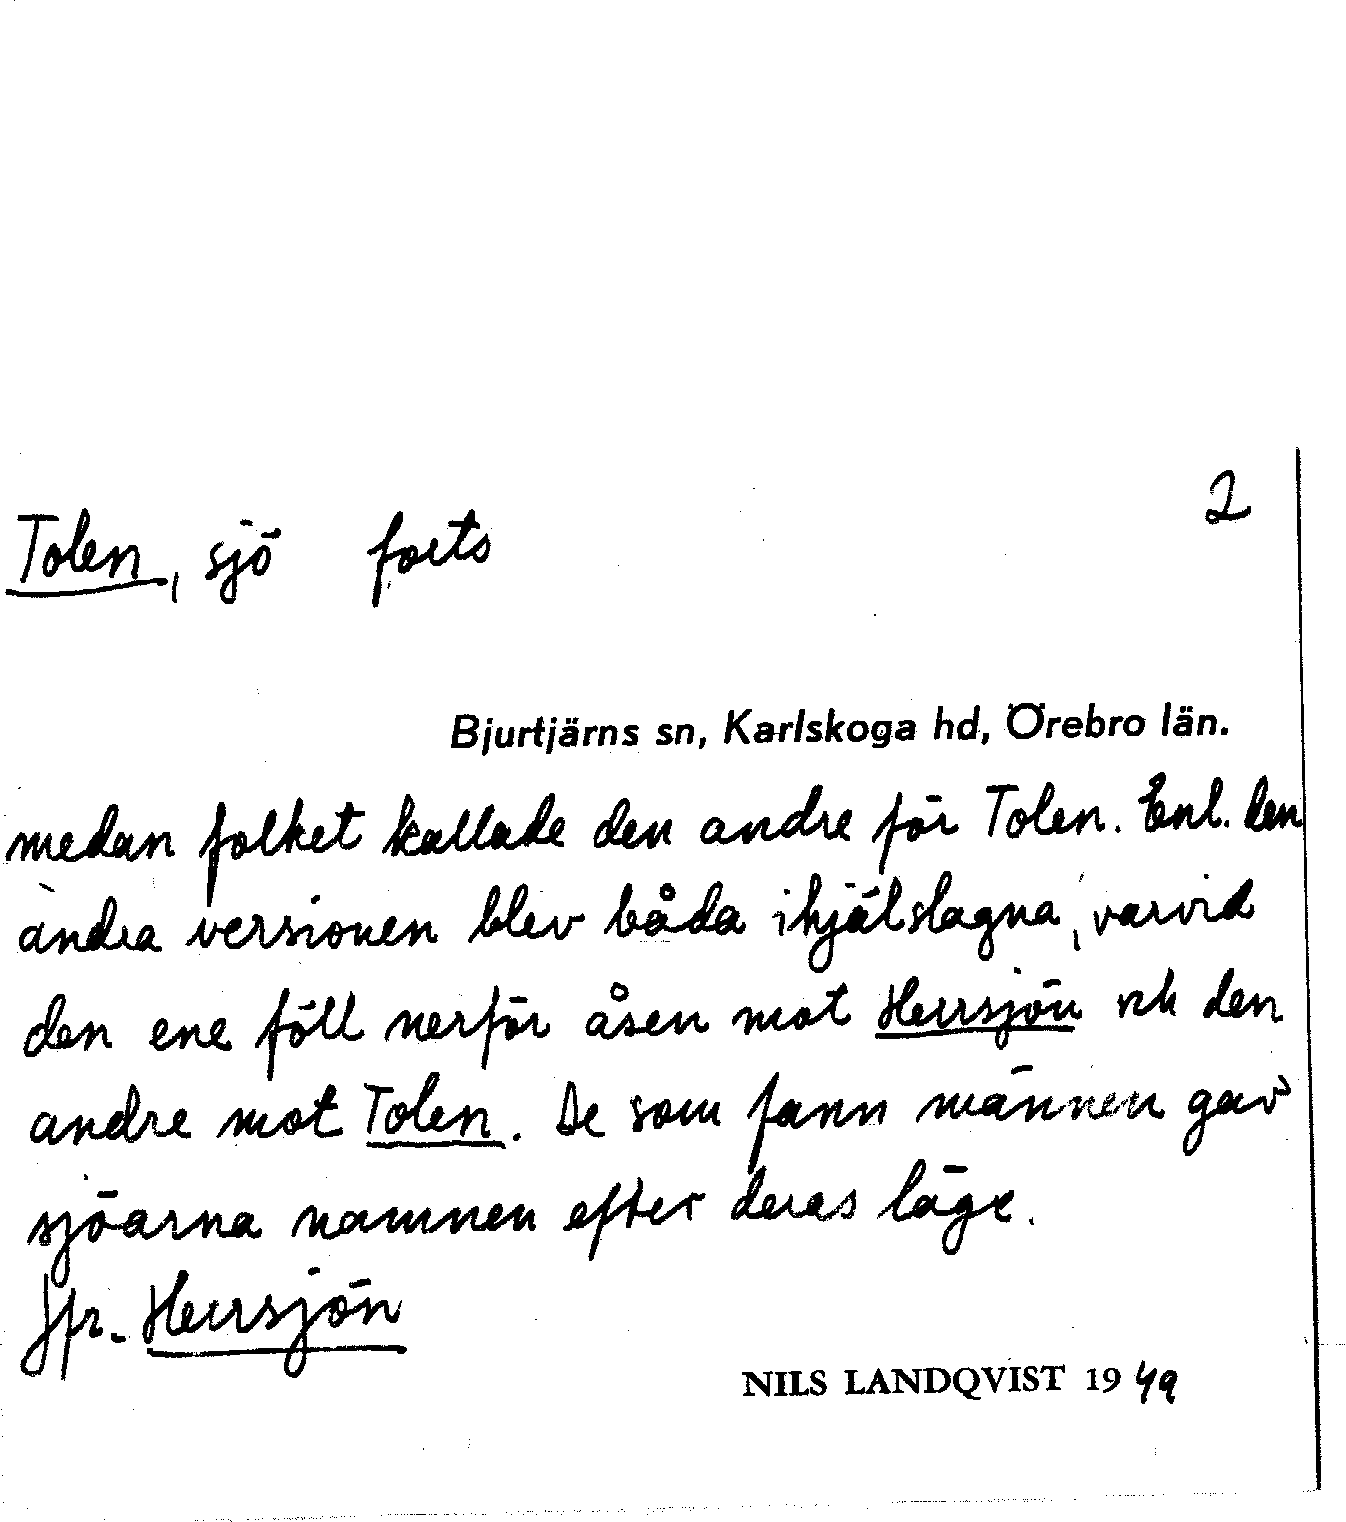 2
Tolen, sjö forts
Bjurtjärns sn, Karlskoga hd, Örebro län.
medan folket kallade den andre för Tolen. Enl. den
andra versionen blev båda ihjälslagna, varvid
den ene föll nerför åsen mot Herrsjön och den
andre mot Tolen. De som fann männen gav
sjöarna namnen efter deras läge.
Jfr. Herrsjön
NILS LANDQVIST 1949